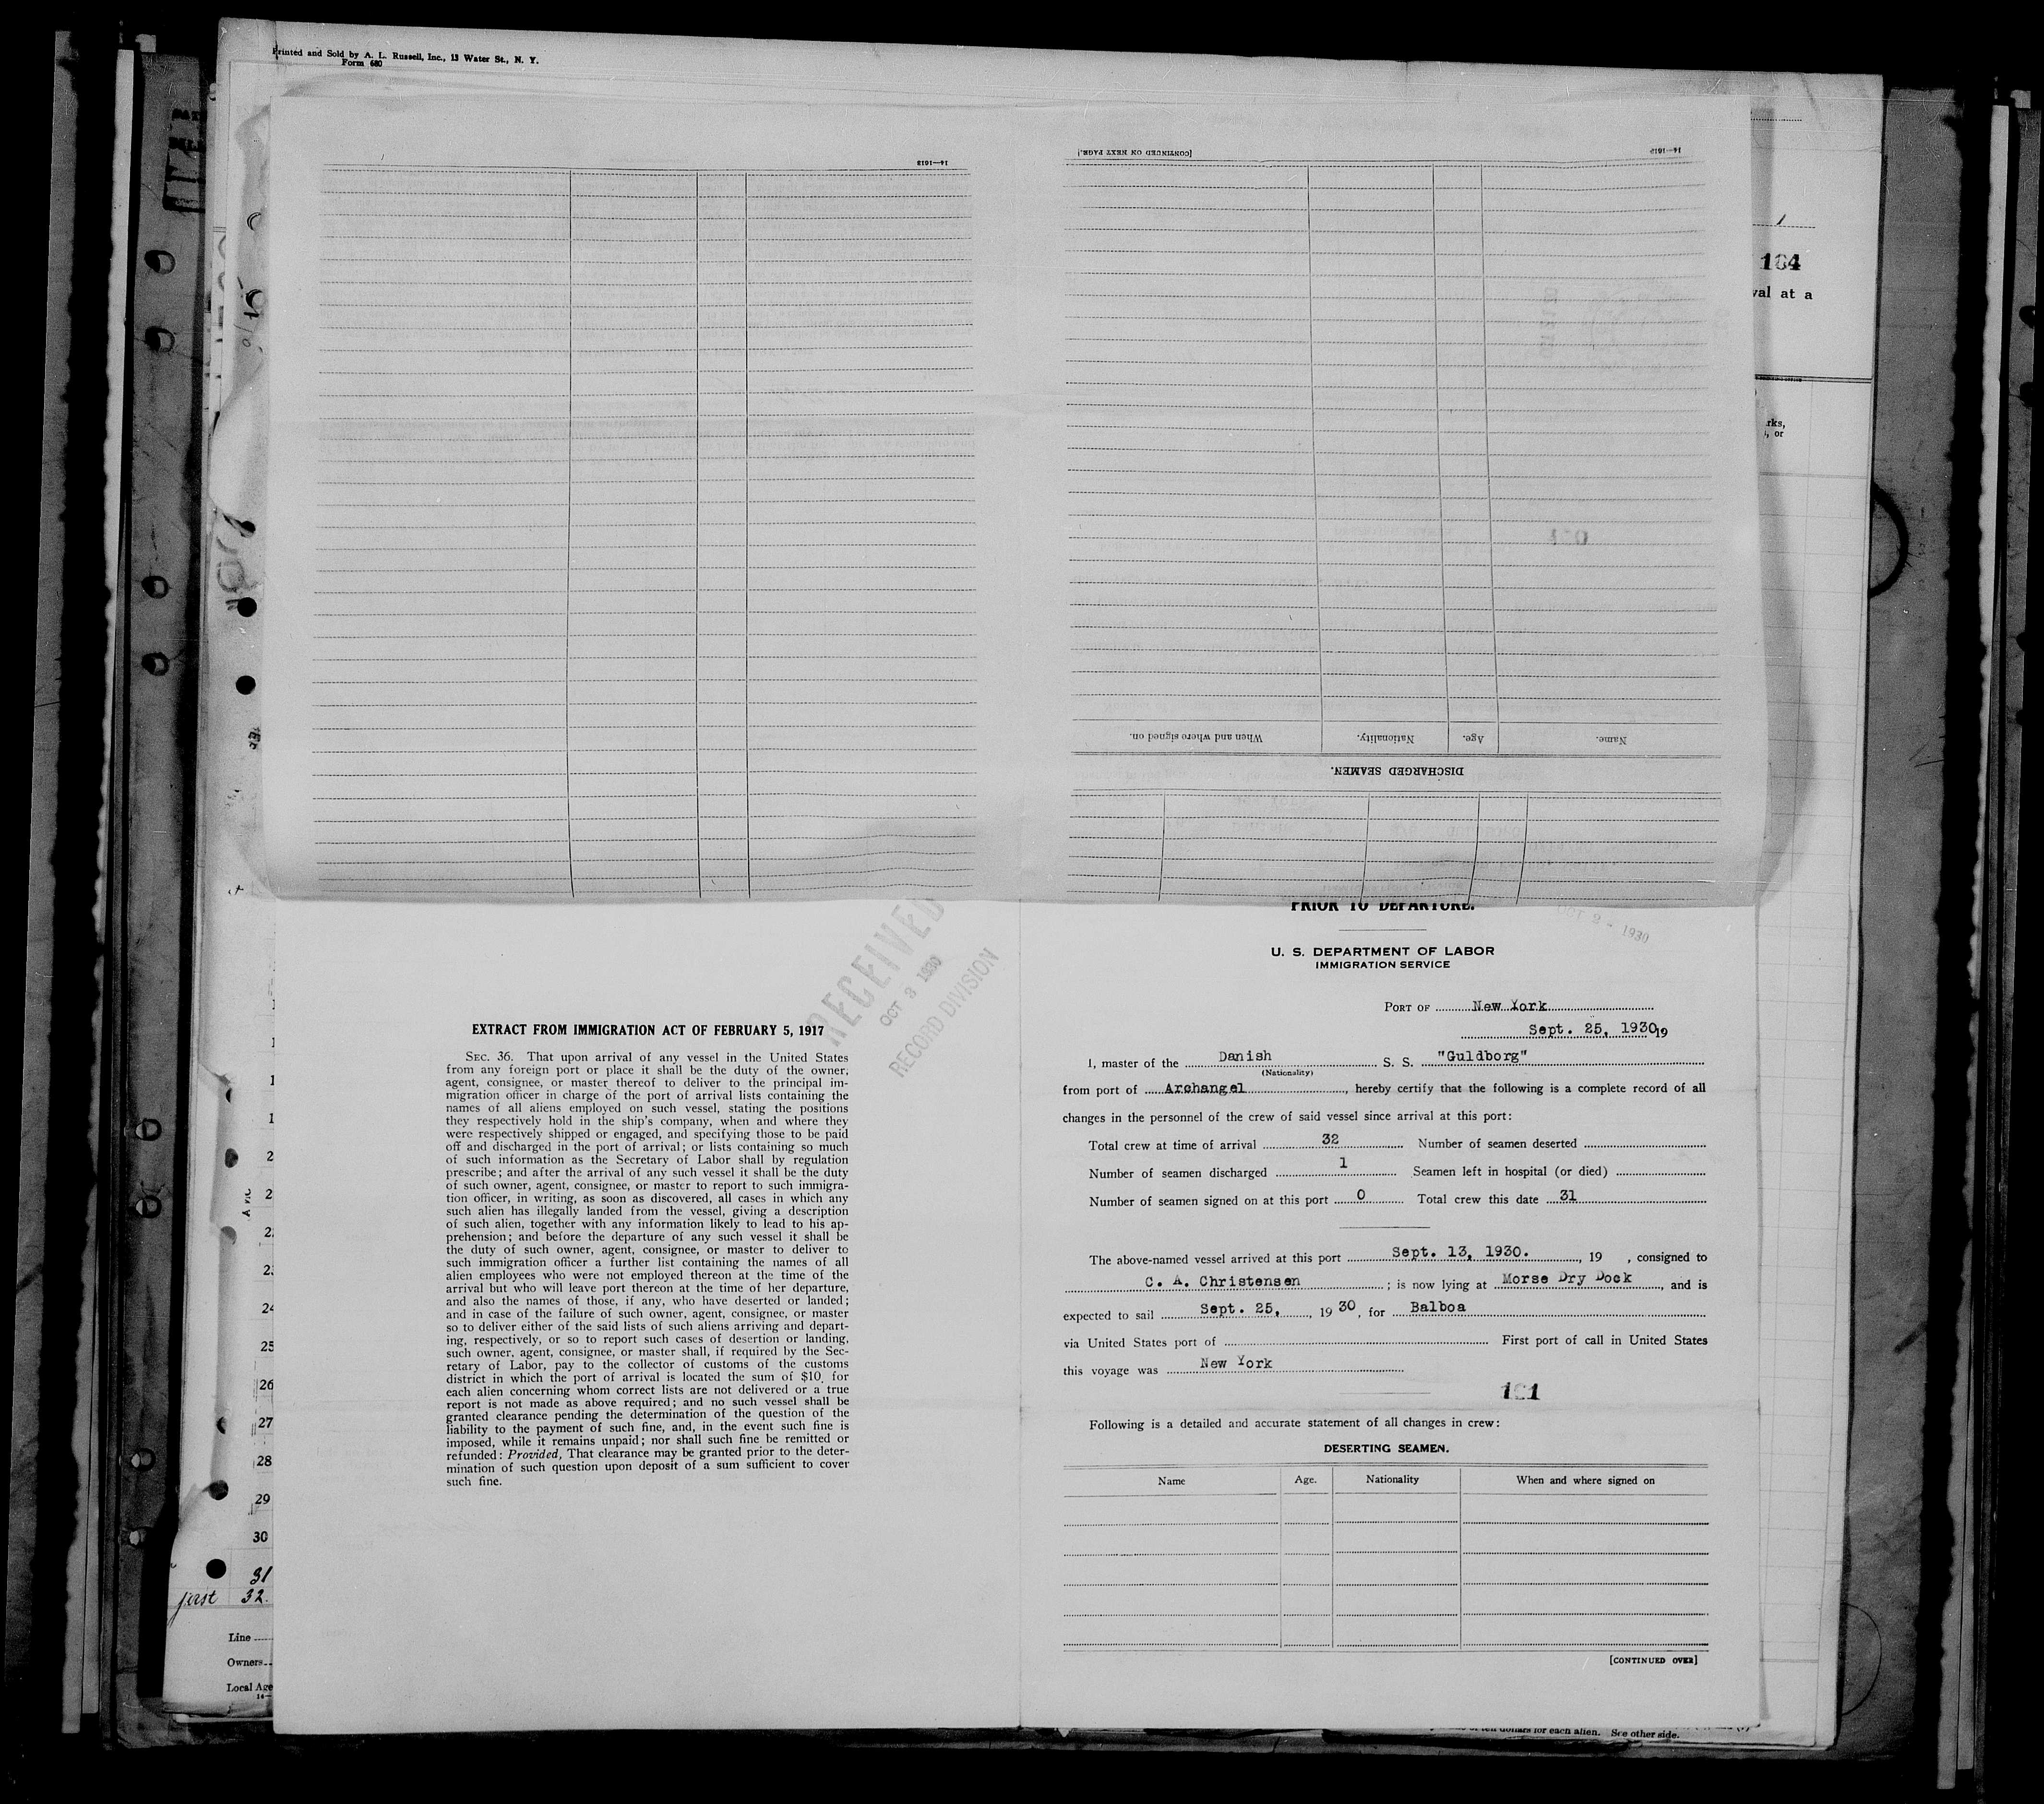 Printed and Sold by A. L. Russell, Inc., 13 Water St., N. Y.
Form 680
14—1613
[CONTINUED ON NEXT PAGE.]
14—1613
1
184
val at a
rks,
, or
When and where signed on.
Nationality.
Age.
Name.
DISCHARGED SEAMEN.
PRIOR TO DEPARTURE.
OCT 2 - 1930
RECEIVED
OCT 3 1930
RECORD DIVISION
EXTRACT FROM IMMIGRATION ACT OF FEBRUARY 5, 1917
SEC. 36. That upon arrival of any vessel in the United States
from any foreign port or place it shall be the duty of the owner,
agent, consignee, or master thereof to deliver to the principal im-
migration officer in charge of the port of arrival lists containing the
names of all aliens employed on such vessel, stating the positions
they respectively hold in the ship's company, when and where they
were respectively shipped or engaged, and specifying those to be paid
off and discharged in the port of arrival; or lists containing so much
of such information as the Secretary of Labor shall by regulation
prescribe; and after the arrival of any such vessel it shall be the duty
of such owner, agent, consignee, or master to report to such immigra-
tion officer, in writing, as soon as discovered, all cases in which any
such alien has illegally landed from the vessel, giving a description
of such alien, together with any information likely to lead to his ap-
prehension; and before the departure of any such vessel it shall be
the duty of such owner, agent, consignee, or master to deliver to
such immigration officer a further list containing the names of all
alien employees who were not employed thereon at the time of the
arrival but who will leave port thereon at the time of her departure,
and also the names of those, if any, who have deserted or landed;
and in case of the failure of such owner, agent, consignee, or master
so to deliver either of the said lists of such aliens arriving and depart-
ing, respectively, or so to report such cases of desertion or landing,
such owner, agent, consignee, or master shall, if required by the Sec-
retary of Labor, pay to the collector of customs of the customs
district in which the port of arrival is located the sum of $10 for
each alien concerning whom correct lists are not delivered or a true
report is not made as above required; and no such vessel shall be
granted clearance pending the determination of the question of the
liability to the payment of such fine, and, in the event such fine is
imposed, while it remains unpaid; nor shall such fine be remitted or
refunded: Provided, That clearance may be granted prior to the deter-
mination of such question upon deposit of a sum sufficient to cover
such fine.
U. S. DEPARTMENT OF LABOR
IMMIGRATION SERVICE
PORT OF New York
Sept. 25, 1930, 19
I, master of the Danish S. S. "Guldborg"
(Nationality)
from port of Archangel, hereby certify that the following is a complete record of all
changes in the personnel of the crew of said vessel since arrival at this port:
Total crew at time of arrival 32 Number of seamen deserted
Number of seamen discharged 1 Seamen left in hospital (or died)
Number of seamen signed on at this port 0 Total crew this date 31
The above-named vessel arrived at this port Sept. 13, 1930., 19 , consigned to
C. A. Christensen ; is now lying at Morse Dry Dock, and is
expected to sail Sept. 25, , 19 30, for Balboa
via United States port of First port of call in United States
this voyage was New York
Following is a detailed and accurate statement of all changes in crew:
DESERTING SEAMEN.
Name Age. Nationality When and where signed on
[CONTINUED OVER]
24
25
26
27
28
29
30
31
first 32.
Line
Owners
Local Age
14—
of ten dollars for each alien. See other side.